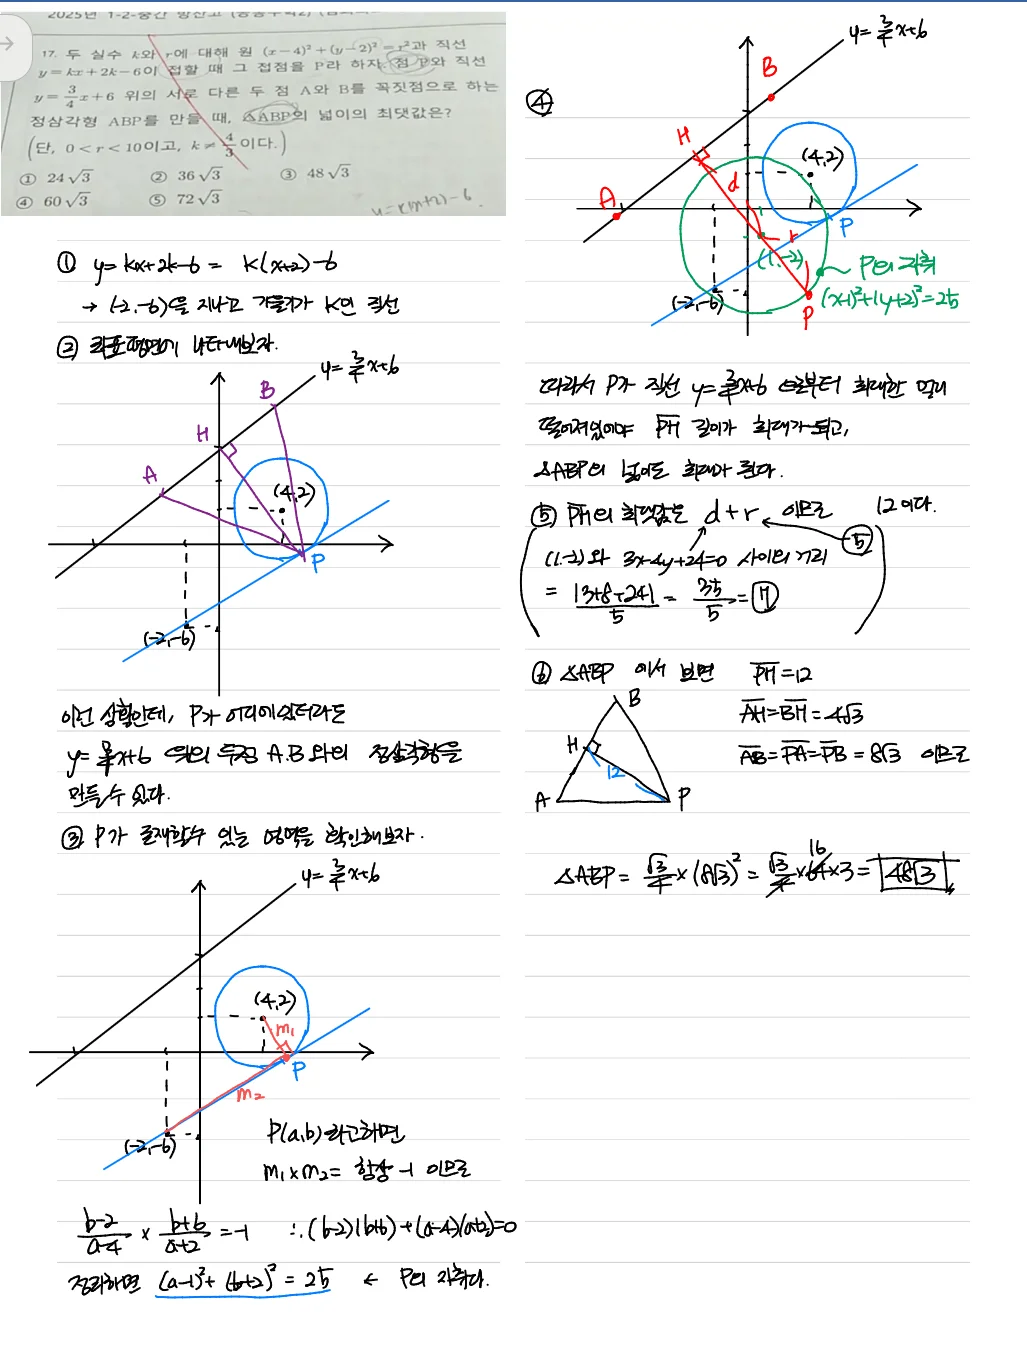 2025년 1-2-중간
17. 두 실수 k와 r에 대해 원 (x-4)²+(y-2)²=r²과 직선
y=kx+2k-6이 접할 때 그 접점을 P라 하자. 점 P와 직선
y=3/4x+6 위의 서로 다른 두 점 A와 B를 꼭짓점으로 하는
정삼각형 ABP를 만들 때, △ABP의 넓이의 최댓값은?
(단, 0<r<10이고, k≠4/3이다.)
① 24√3 ② 36√3 ③ 48√3
④ 60√3 ⑤ 72√3
y=k(x+2)-6
① y=kx+2k-6 = k(x+2)-6
→ (-2,-6)을 지나고 기울기가 k인 직선
② 좌표평면에 나타내보자.
y=3/4x+6
B
H
A
(4,2)
P
(-2,-6)
이런 상황인데, P가 어디에 있더라도
y=3/4x+6 위의 두점 A,B와의 정삼각형을
만들 수 있다.
③ P가 존재할수 있는 영역을 확인해보자.
y=3/4x+6
(4,2)
m₁
P
m₂
(-2,-6)
P(a,b)라고하면
m₁×m₂= 항상 -1 이므로
b-2/a-4 × b+6/a+2 = -1 ∴(b-2)(b+6)+(a-4)(a+2)=0
정리하면 (a-1)²+(b+2)²=25 ← P의 자취다.
④
y=3/4x+6
B
H
(4,2)
d
A
P
r
(1,-2)
P의 자취
(-2,-6)
(x-1)²+(y+2)²=25
P
따라서 P가 직선 y=3/4x+6 으로부터 최대한 멀리
떨어져있어야 PH 길이가 최대가 되고,
△ABP의 넓이도 최대가 된다.
⑤ PH의 최댓값은 d+r 이므로 12이다.
⑤
(1,-2)와 3x-4y+24=0 사이의 거리
= |3+8+24|/5 = 35/5 = 7
⑥ △ABP 에서 보면 PH=12
B
AH=BH=4√3
H
AB=PA=PB=8√3 이므로
12
A
P
△ABP = √3/4×(8√3)² = √3/4×64×3 = 48√3
16